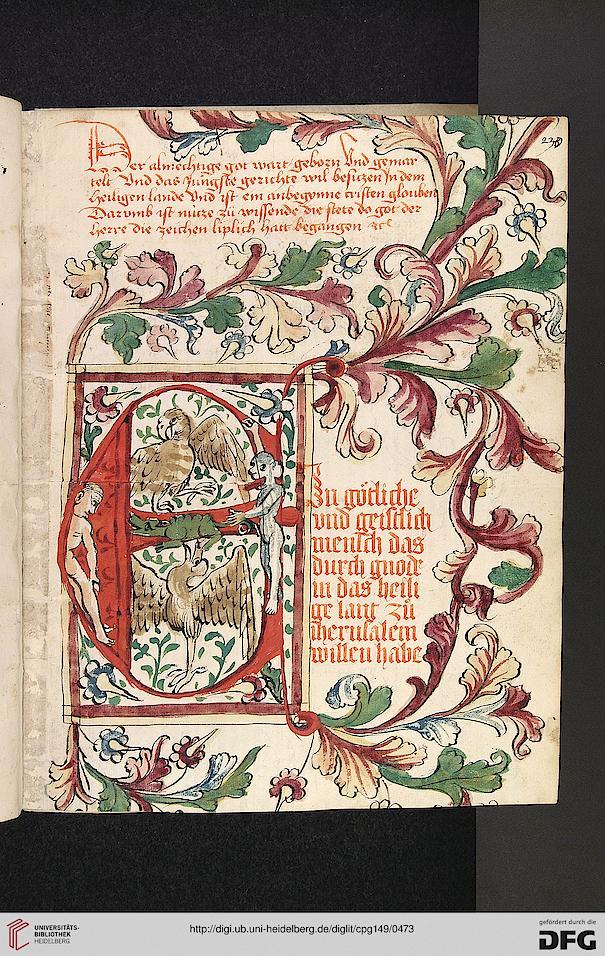 Der almechtige got wart geborn Vnd gemar
telt Vnd das Jungste gerichte wil besitzen In dem
heiligen lande Vnd ist ein anbegynne cristen glouben
Darvmb ist nütze zü wissende die stete do got der
herre die zeichen liplich hatt begangen
EIn götliche
vnd geistlich
mensch das
durch gnode
in das heili
ge lant zü
iherusalem
willen habe
UNIVERSITÄTS-
BIBLIOTHEK
HEIDELBERG
http://digi.ub.uni-heidelberg.de/diglit/cpg149/0473
gefördert durch die
DFG